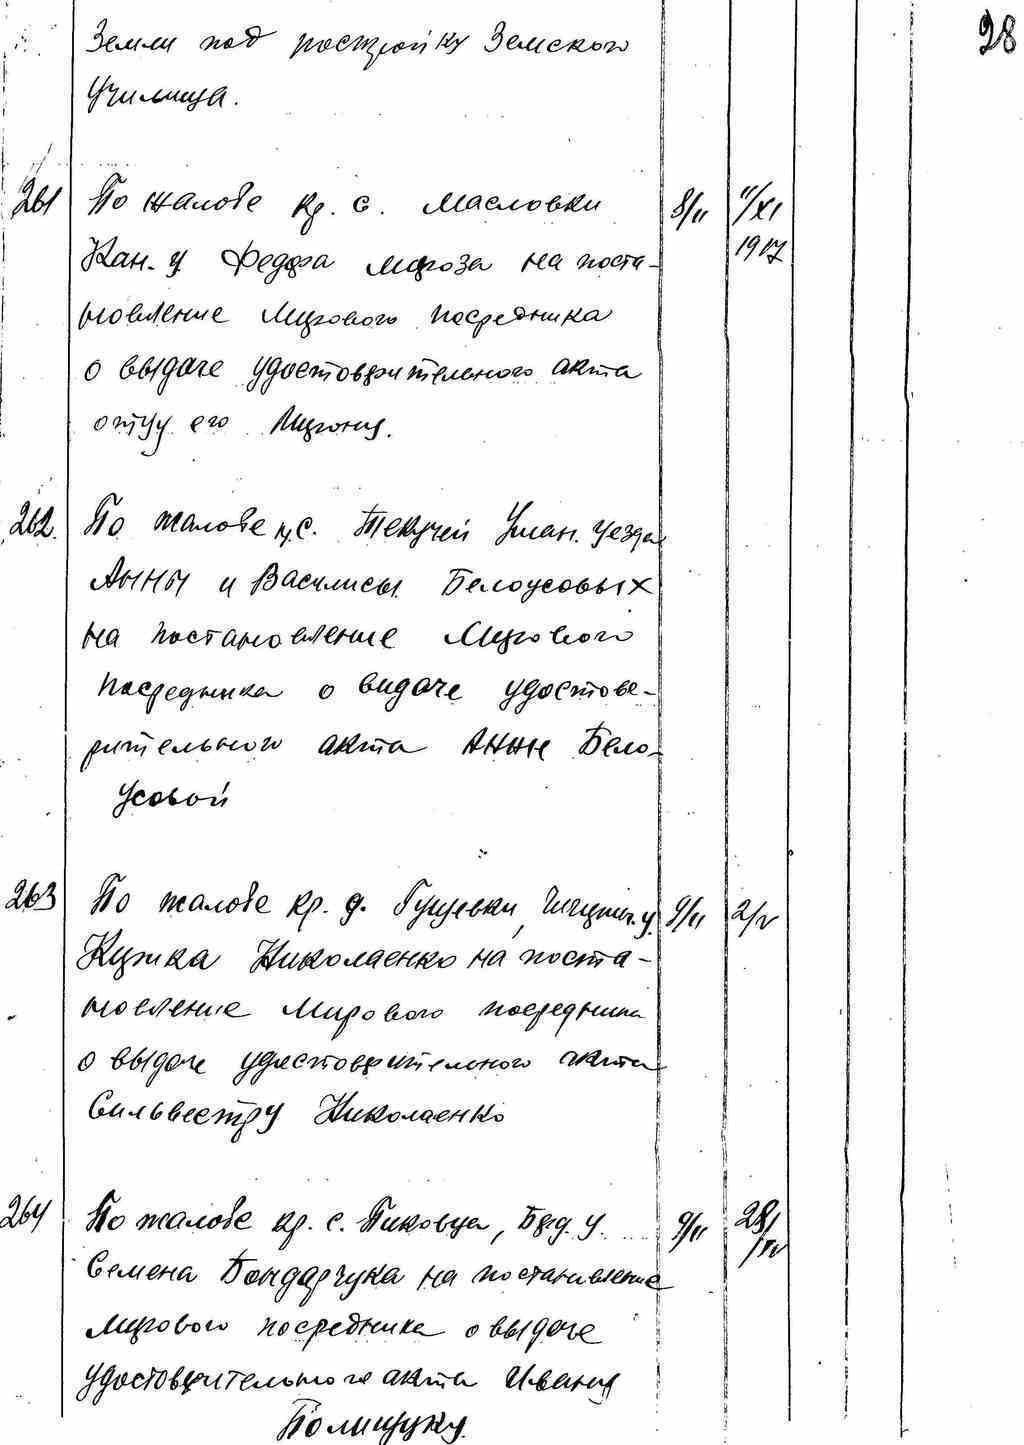 28
Земли под постройку Земского
Училища.
261 По жалобе кр. с. Масловки 8/II 11/XI
Кан. у Федора Мороза на поста- 1917
новление Мирового посредника
о выдаче удостоверительного акта
отцу его Мирону.
262. По жалобе кр. с. Текучей Уман. уезда
Анны и Василисы Белоусовых
на постановление Мирового
посредника о видаче удостове-
рительного акта Анне Бело-
усовой
263 По жалобе кр. д. Чигирин. у. 9/II 2/V
Кузьма Николаенко на поста-
новление Мирового посредника
о выдаче удостоверительного акта
Сильвестру Николаенко
264 По жалобе кр. с. Пиковца, Берд. у. 9/II 28/IV
Семена Бондарчука на постановление
Мирового посредника о выдаче
удостоверительного акта Ивану
Полищуку.